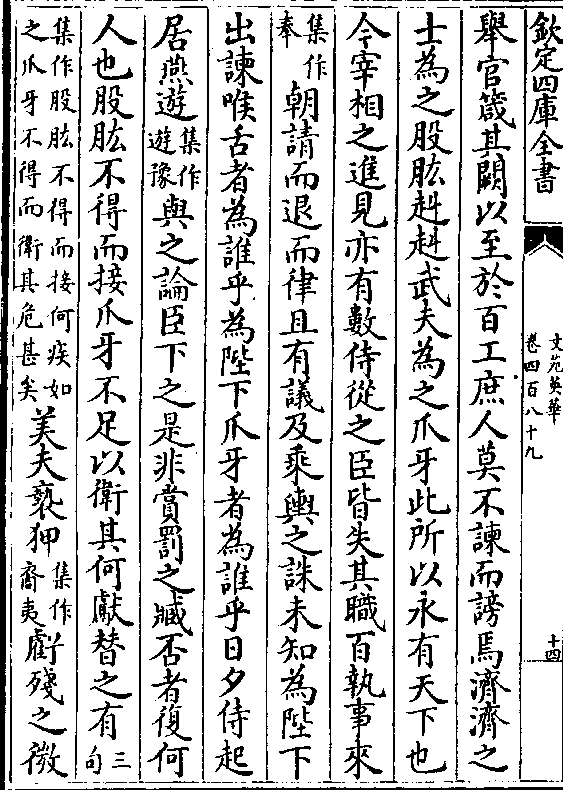 欽定四庫全書
文苑英華
卷四百八十九
十四
舉官箴其闕以至於百工庶人莫不諫而謗焉濟濟之
士為之股肱赳赳武夫為之爪牙此所以永有天下也
今宰相之進見亦有數侍從之臣皆失其職百執事來
集作奉朝請而退而律且有議及乘輿之誅未知為陛下
出諫喉舌者為誰乎為陛下爪牙者為誰乎日夕侍起
居燕遊集作遊豫與之論臣下之是非賞罰之臧否者復何
人也股肱不得而接爪牙不足以衛其何獻替之有三句
集作股肱不得而接何疾如之爪牙不得而衛其危甚矣美夫褻狎集作裔夷虧殘之微